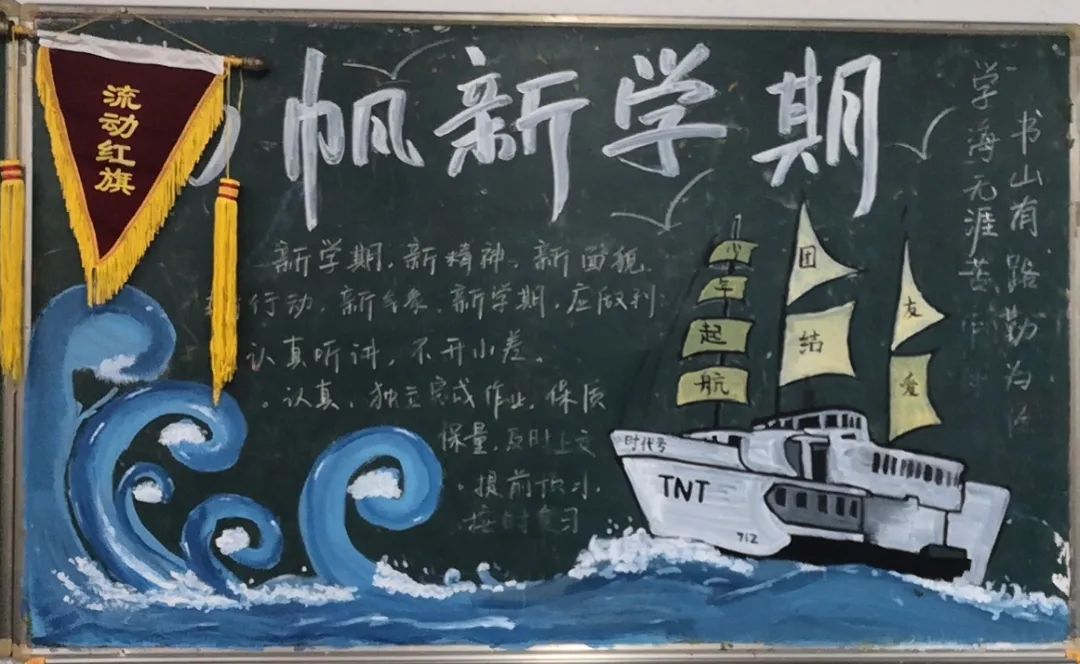 流动红旗
帆新学期
新学期,新精神,新面貌,
行动,新气象,新学期,应做到:
认真听讲,不开小差。
·认真、独立完成作业,保质
保量,及时上交
·提前预习,
按时复习
书山有路勤为径
学海无涯苦作舟
少年起航
团结
友爱
时代号
TNT
712